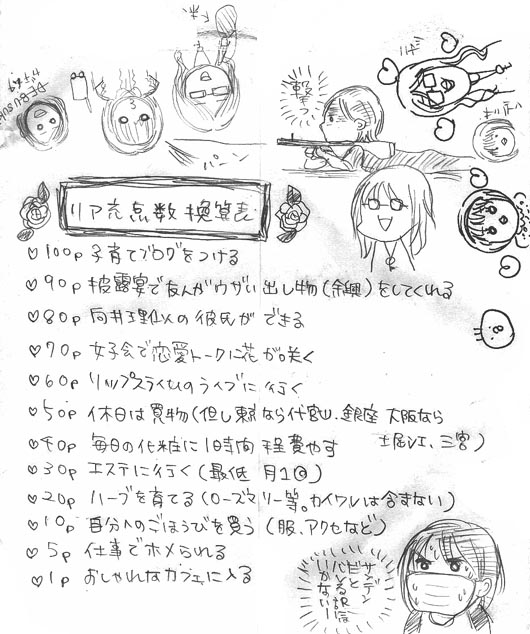 撃つ
パーン
リア充点数換算表
♡100p 子育てブログをつける
♡90p 披露宴で友人がウザい出し物(余興)をしてくれる
♡80p 向井理似の彼氏ができる
♡70p 女子会で恋愛トークに花が咲く
♡60p リップスライムのライブに行く
♡50p 休日は買物(但し東京なら代官山、銀座 大阪なら
堀江、三宮)
♡40p 毎日の化粧に1時間程費やす
♡30p エステに行く(最低 月1回)
♡20p ハーブを育てる(ローズマリー等。カイワレは含まない)
♡10p 自分へのごほうびを買う(服、アクセなど)
♡5p 仕事でホメられる
♡1p おしゃれなカフェに入る